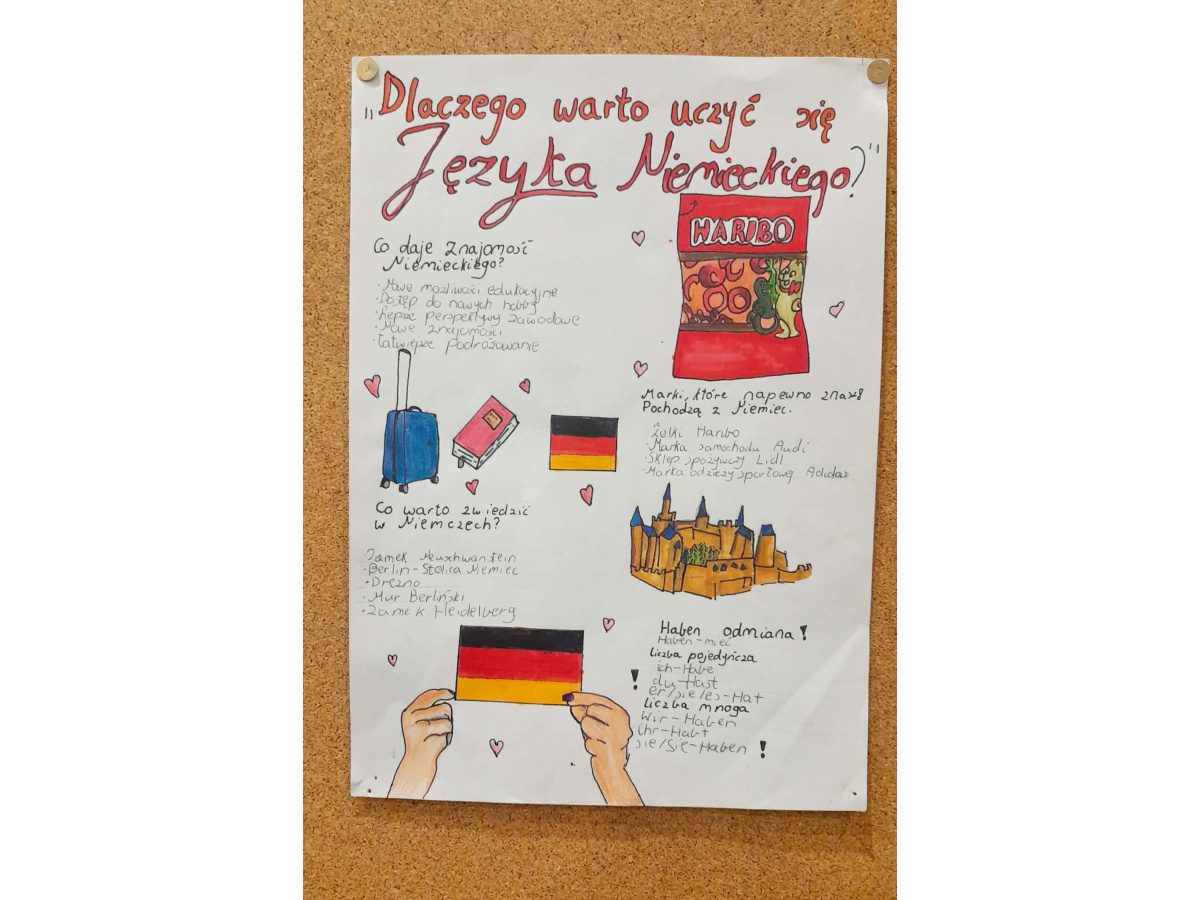 „Dlaczego warto uczyć się
Języka Niemieckiego?"
HARIBO
Co daje znajomość
Niemieckiego?
·Nowe możliwości edukacyjne
·Dostęp do nowych hobby
·Lepsze perspektywy zawodowe
·Nowe znajomości
·Łatwiejsze podróżowanie
Marki, które napewno znasz
Pochodzą z Niemiec.
·Żelki Haribo
·Marka samochodu Audi
·Sklep spożywczy Lidl
·Marka odzieży sportowej Adidas
Co warto zwiedzić
w Niemczech?
Zamek Neuschwanstein
·Berlin-Stolica Niemiec
·Drezno
·Mur Berliński
·Zamek Heidelberg
Haben odmiana!
Haben-mieć
liczba pojedyńcza
ich-Habe
! du-Hast
er/sie/es-Hat
liczba mnoga
Wir-Haben
ihr-Habt
sie/Sie-Haben !